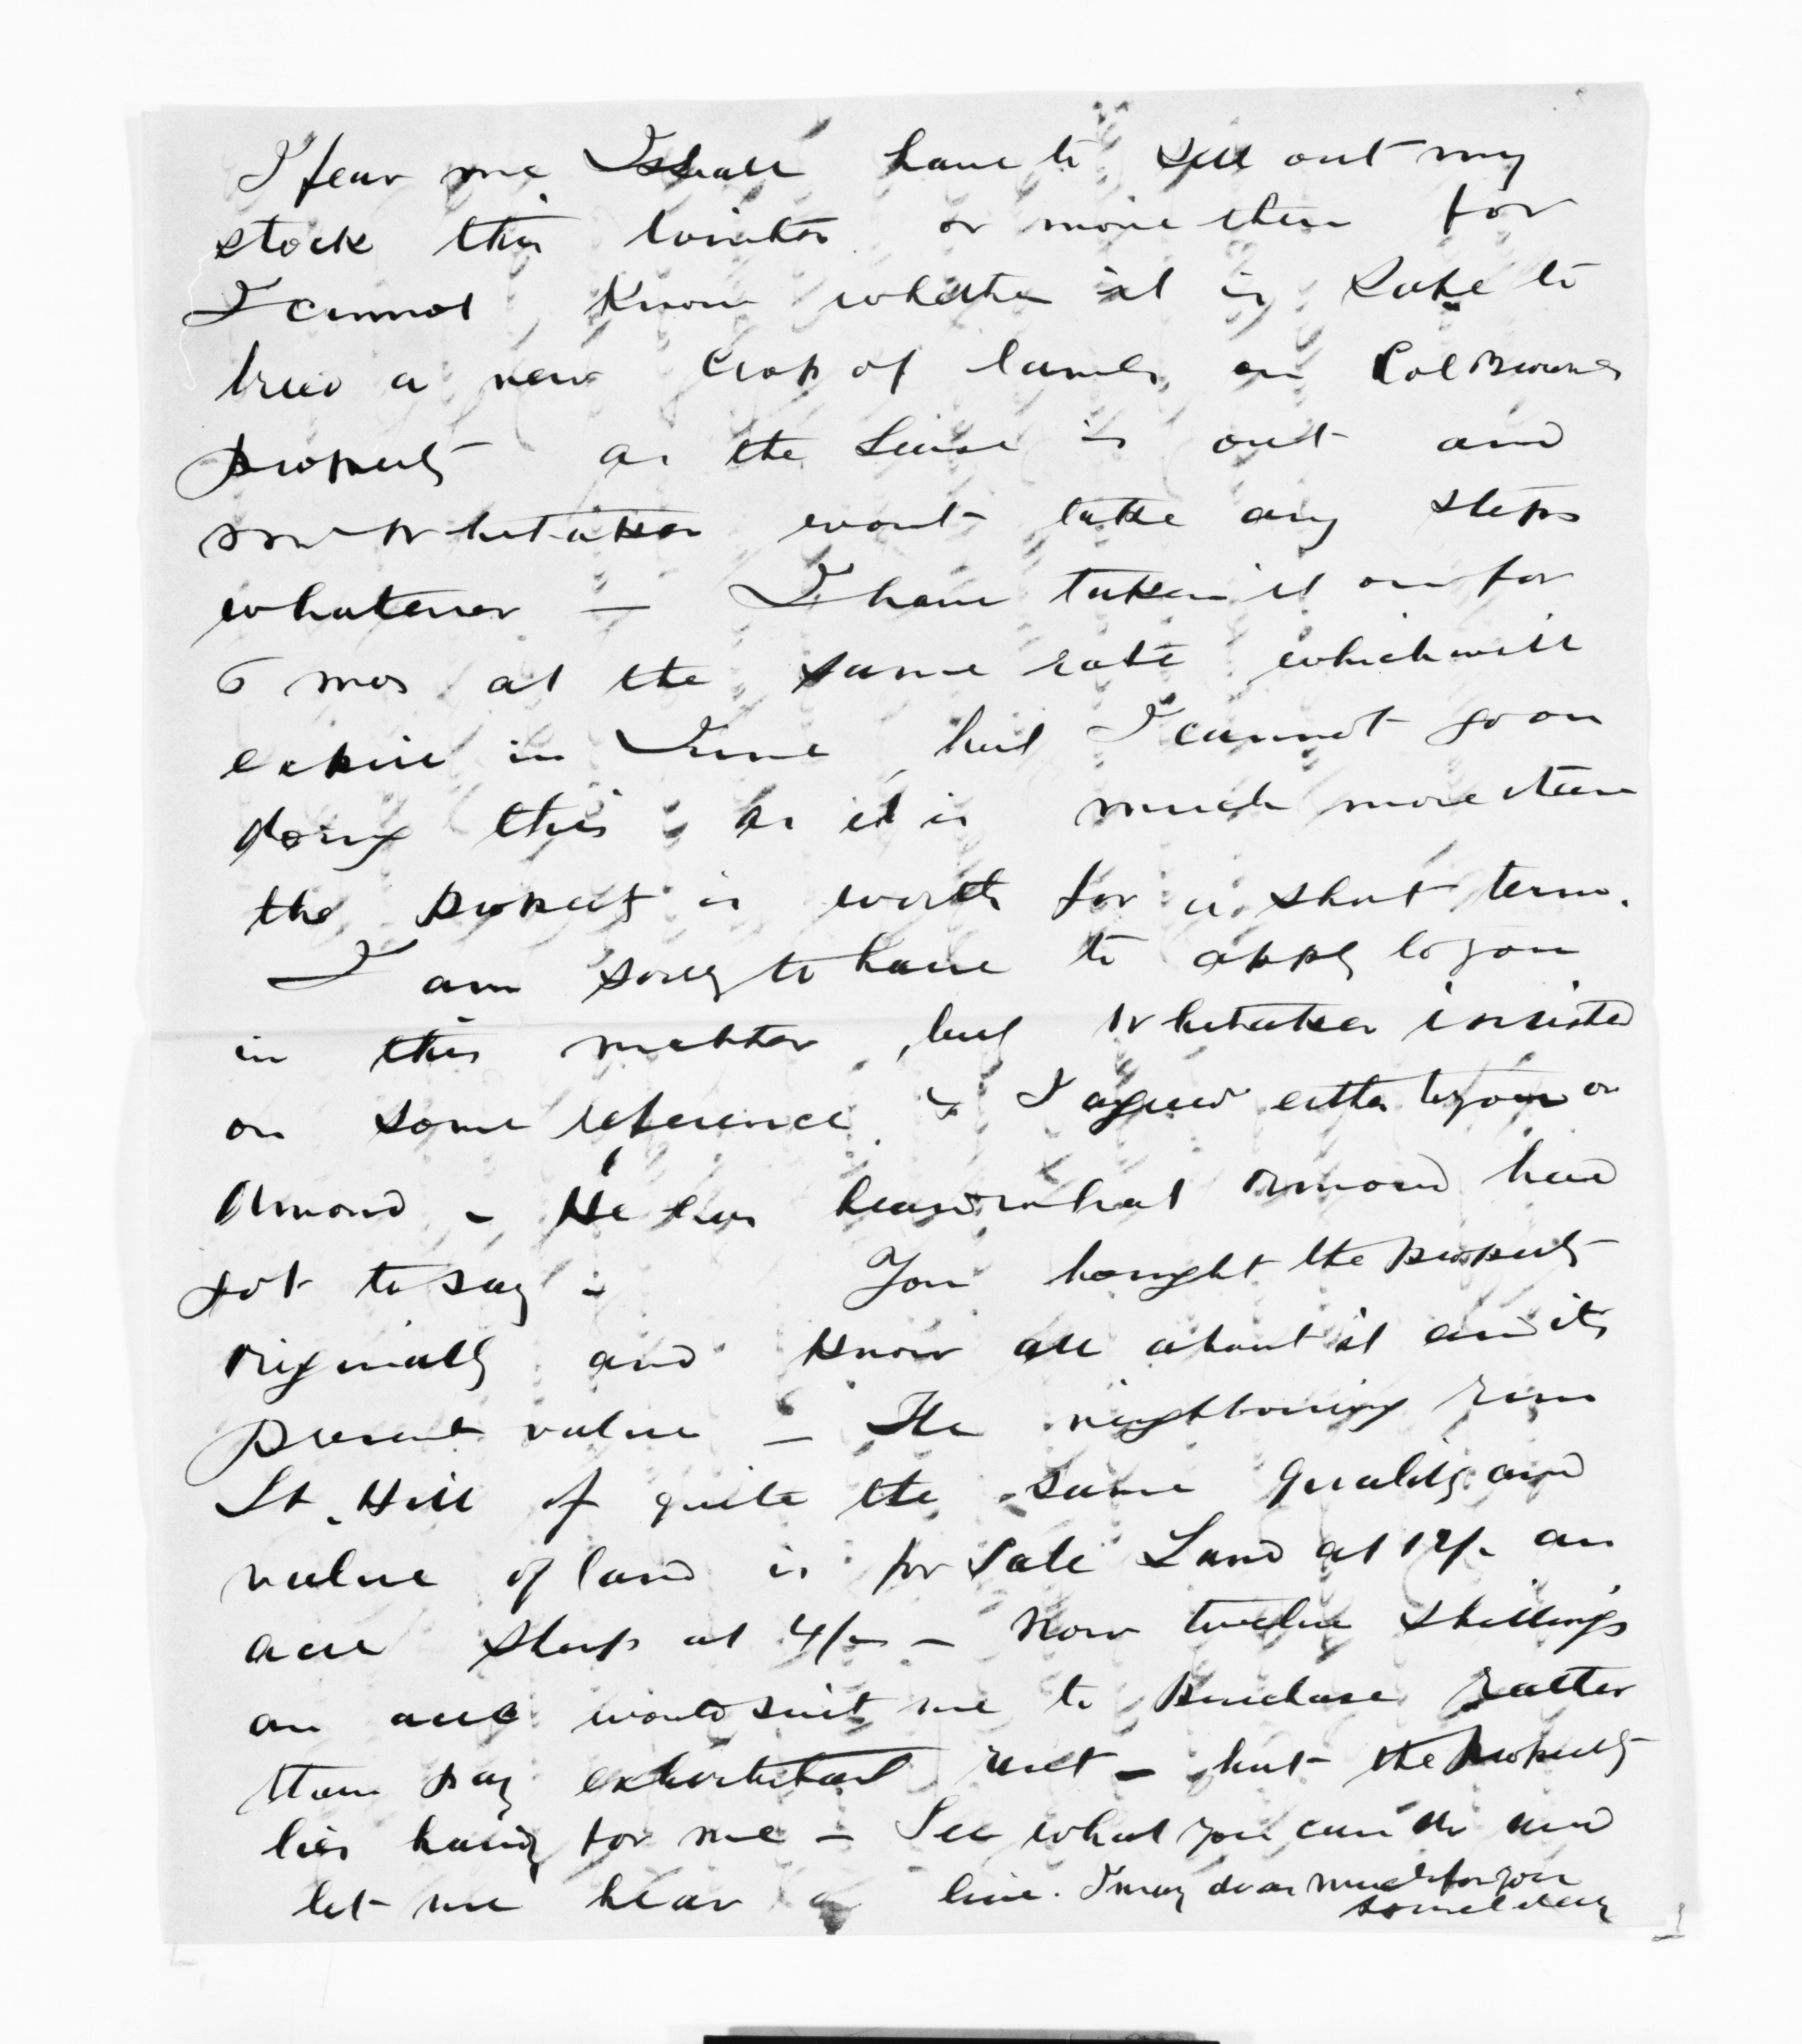 I fear me I shall have to sell out my
stock this winter or move them for
I cannot know whether it is safe to
breed a new crop of lambs on Col Brownes
property as the lease is out and
Whitaker wont take any steps
whatever — I have taken it on for
6 mos at the same rate which will
expire in June, but I cannot go on
doing this as it is much more than
the property is worth for a short term.
I am sorry to have to apply to you
in this matter, but Whitaker insisted
on some reference & I agreed either to you or
Ormond - He has heard what Ormond had
got to say - You bought the property
originally and know all about it and its
present value — The neighbouring run
St. Hill of quite the same quality and
value of land is for sale Land at 12/- an
acre sheep at 4/- — Now twelve shillings
an acre would suit me to purchase rather
than pay exhorbitant rent — but the property
lies handy for me — See what you can do and
let me hear a line. I may do as much for you
some day